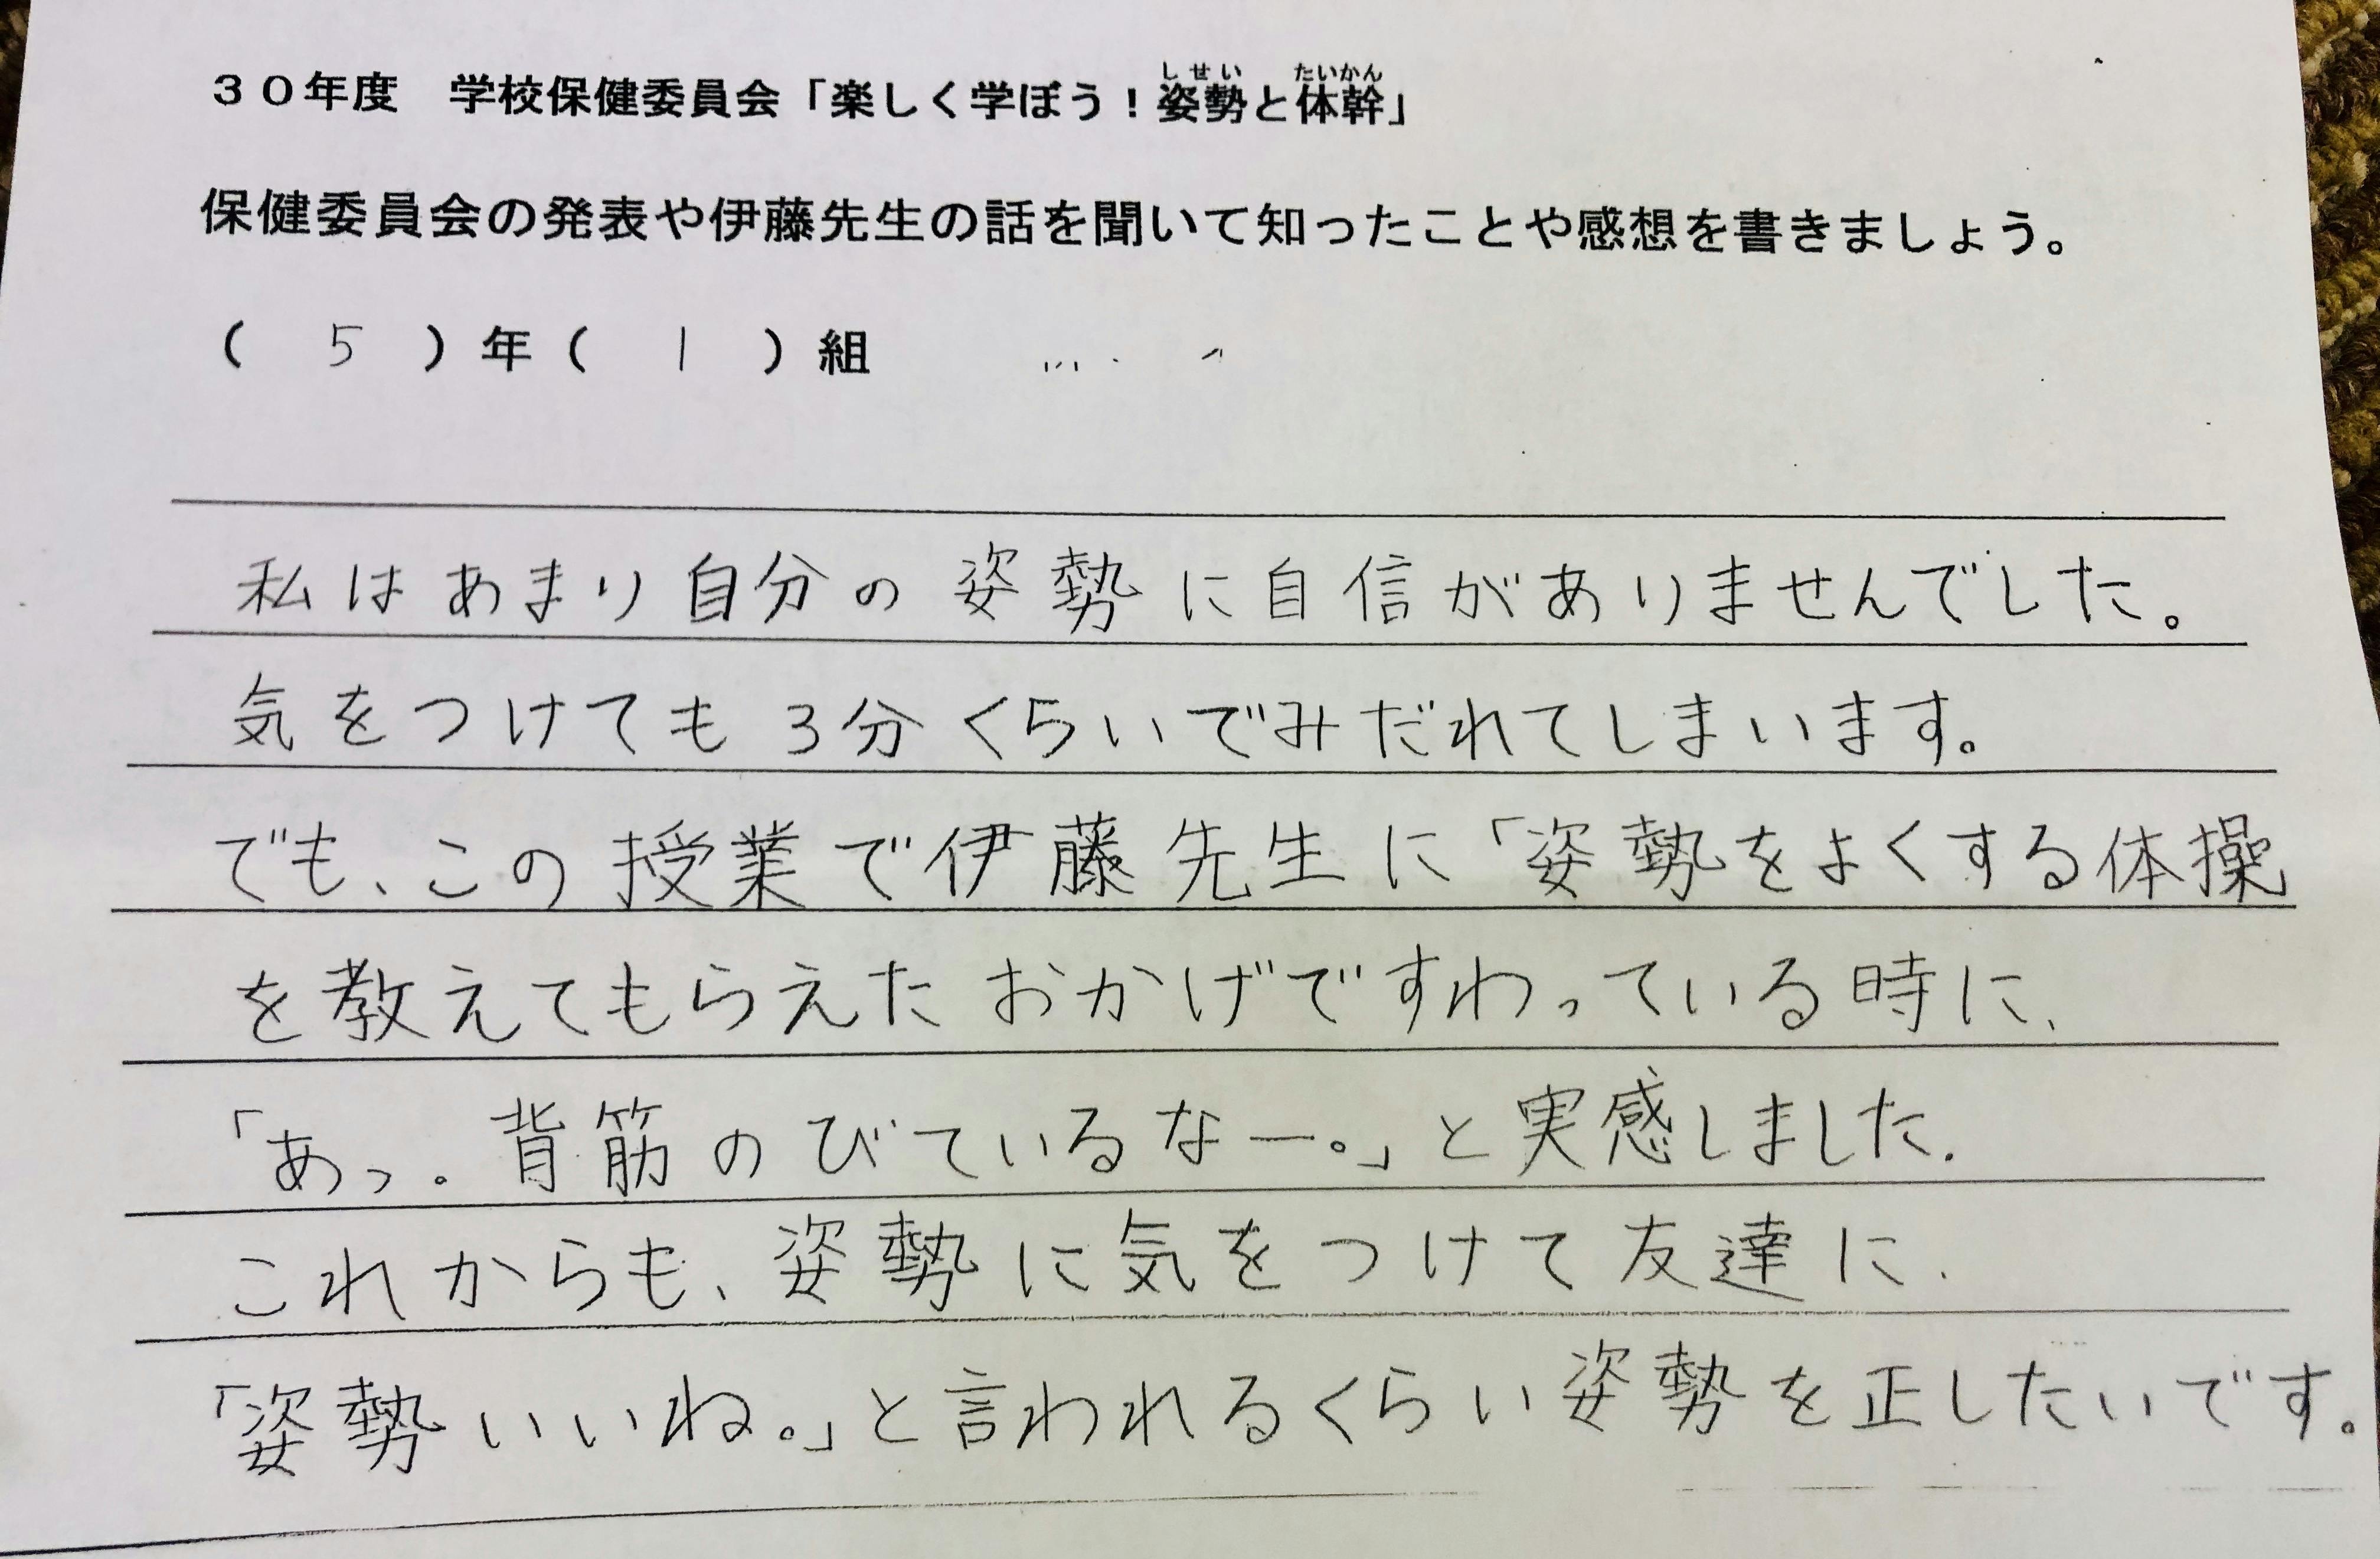 30年度 学校保健委員会「楽しく学ぼう！姿勢と体幹」
保健委員会の発表や伊藤先生の話を聞いて知ったことや感想を書きましょう。
（ 5 ）年（ 1 ）組
私はあまり自分の姿勢に自信がありませんでした。
気をつけても3分くらいでみだれてしまいます。
でも、この授業で伊藤先生に「姿勢をよくする体操
を教えてもらえたおかげですわっている時に、
「あっ。背筋のびているなー。」と実感しました.
これからも、姿勢に気をつけて友達に、
「姿勢いいね。」と言われるくらい姿勢を正したいです。